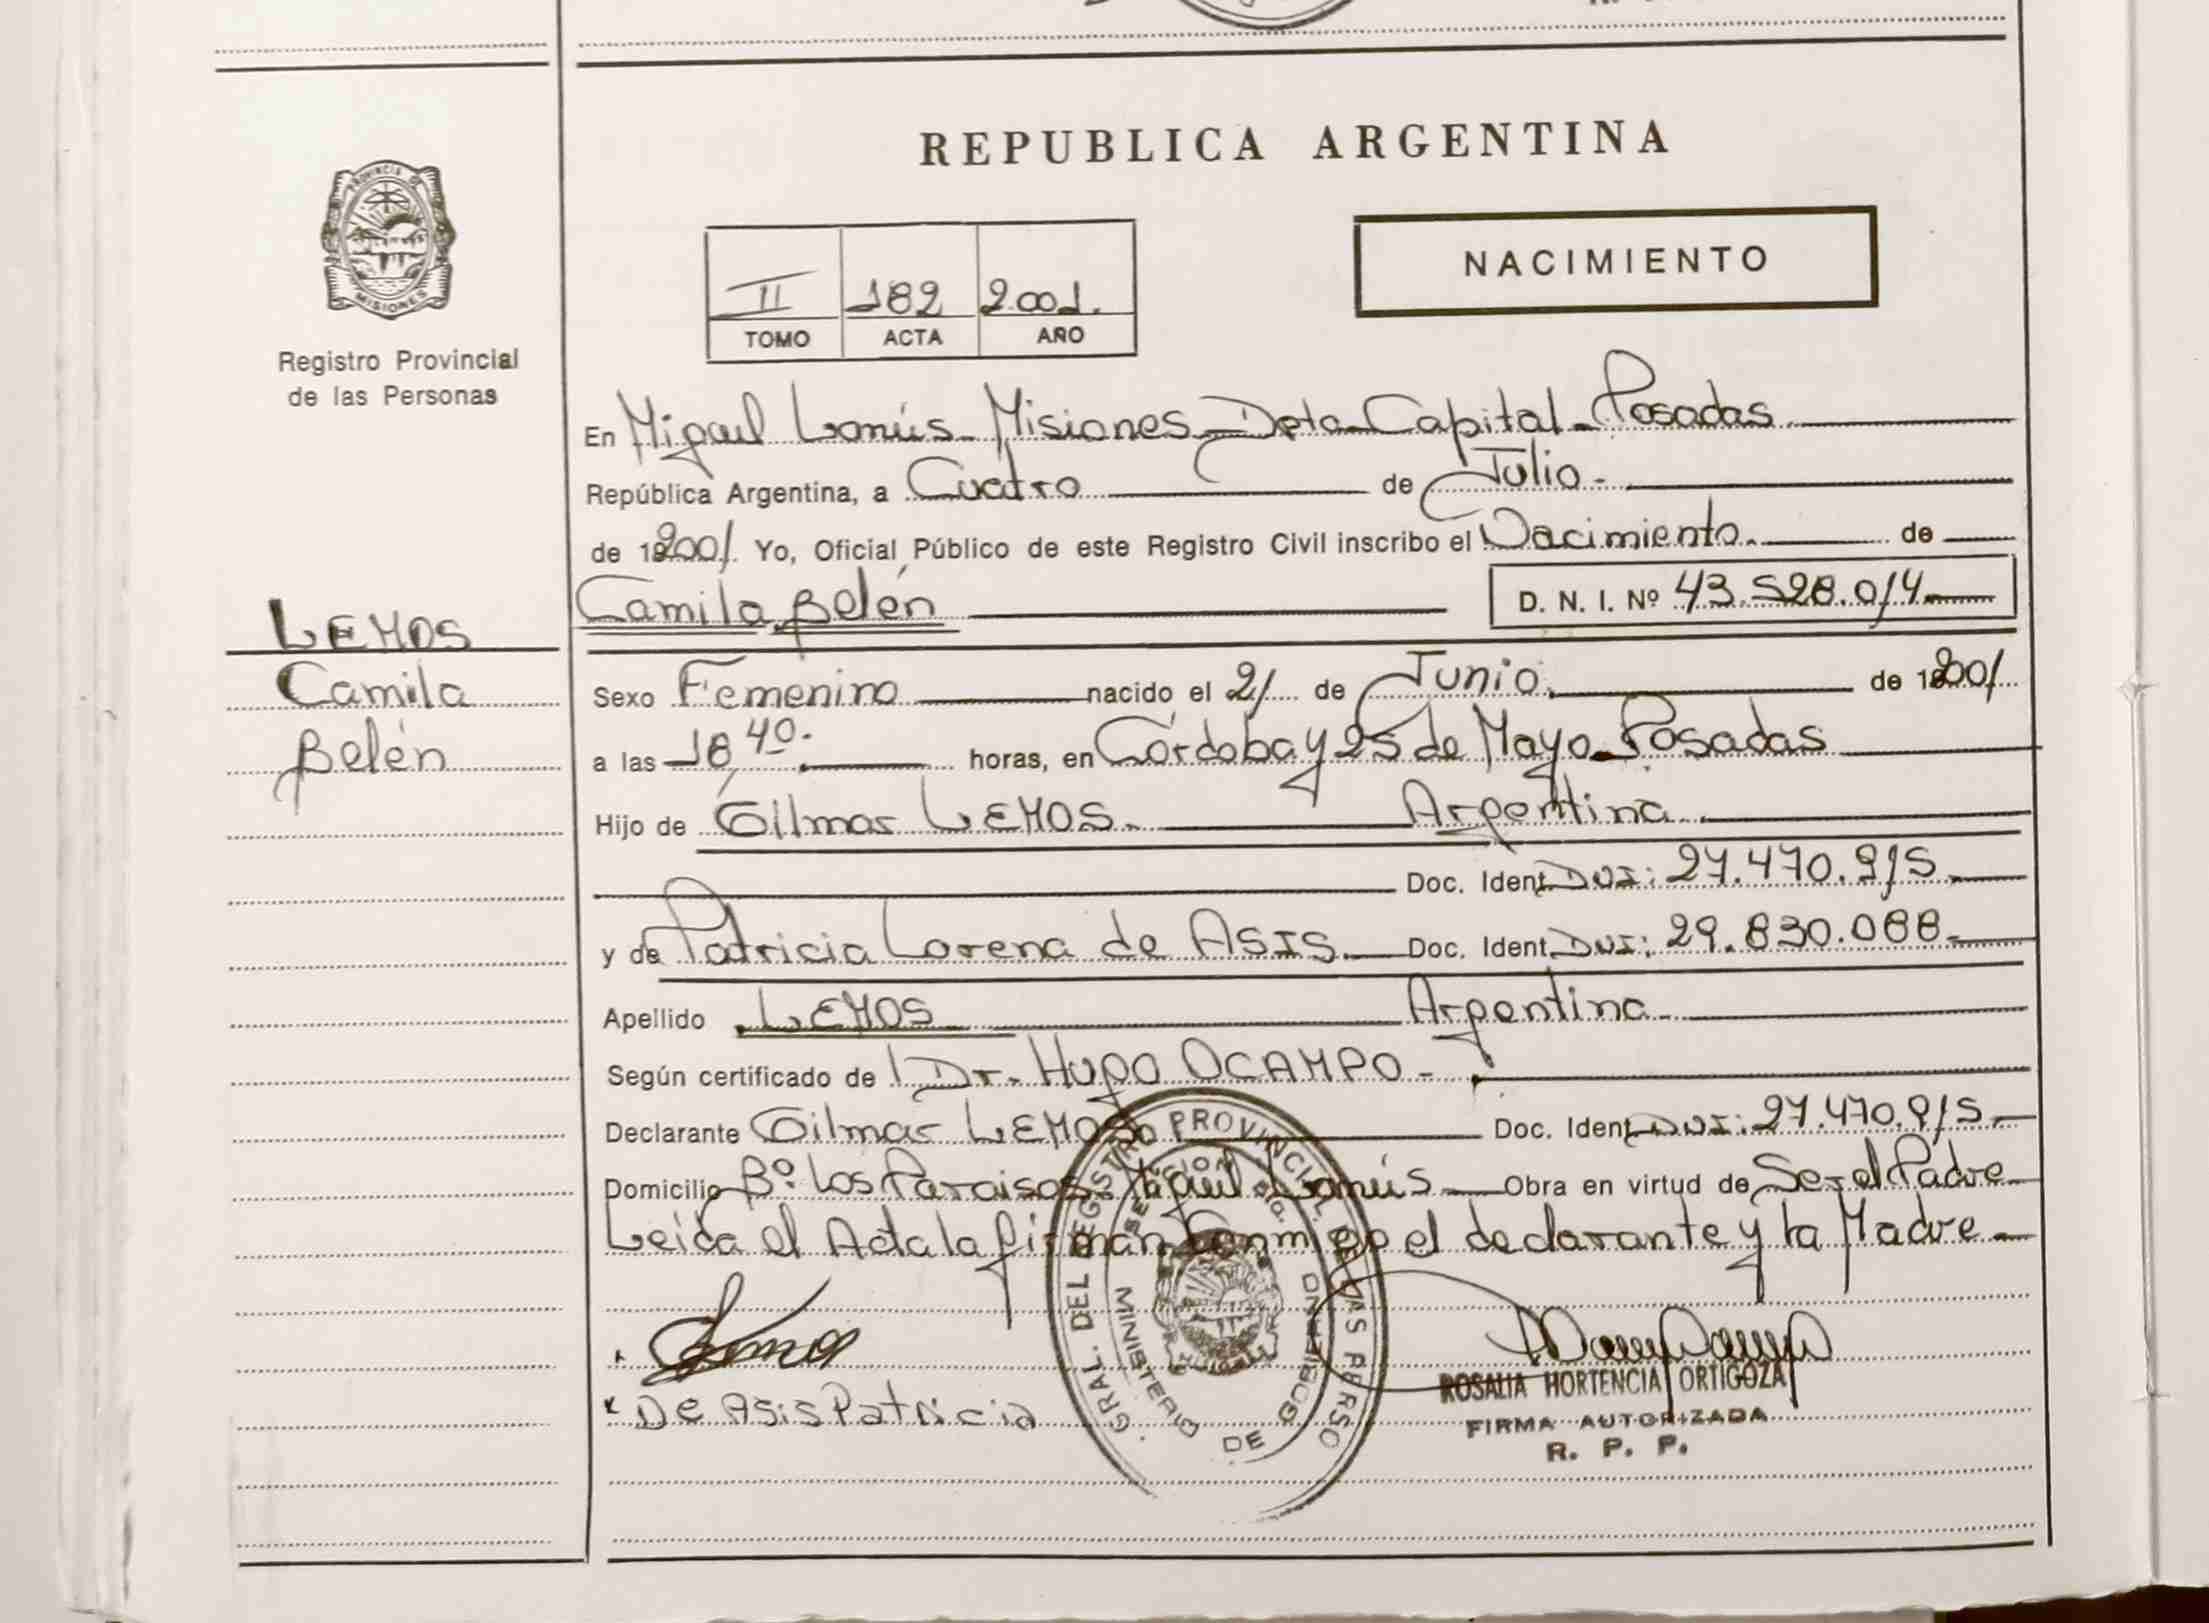 REPUBLICA ARGENTINA
PROVINCIA DE
MISIONES
Registro Provincial
de las Personas
NACIMIENTO
II 182 2.001.
TOMO ACTA AÑO
En Miguel Lanús - Misiones - Dpto - Capital - Posadas
República Argentina, a Cuatro de Julio -
de 2001. Yo, Oficial Público de este Registro Civil inscribo el Nacimiento. de
Camila Belén D. N. I. Nº 43.528.014
LEMOS
Camila
Belén
Sexo Femenino nacido el 21 de Junio. de 2001
a las 18 40. horas, en Córdoba y 25 de Mayo - Posadas
Hijo de Gilmar LEMOS. Argentina
Doc. Ident. DNI: 27.470.915
y de Patricia Lorena de ASIS. Doc. Ident. DNI: 29.830.088
Apellido LEMOS Argentina
Según certificado de Dr. Hugo OCAMPO -
Declarante Gilmar LEMOS Doc. Ident. DNI: 27.470.915
Domicilio Bº Los Paraisos. Miguel Lanús Obra en virtud de Ser el Padre
Leida el Acta la firman conmigo el declarante y la Madre
De Asis Patricia
GRAL. DEL REGISTRO PROVINCIAL DE LAS PERSO
MINISTERIO DE GOBIERNO
ROSALIA HORTENCIA ORTIGOZA
FIRMA AUTORIZADA
R. P. P.